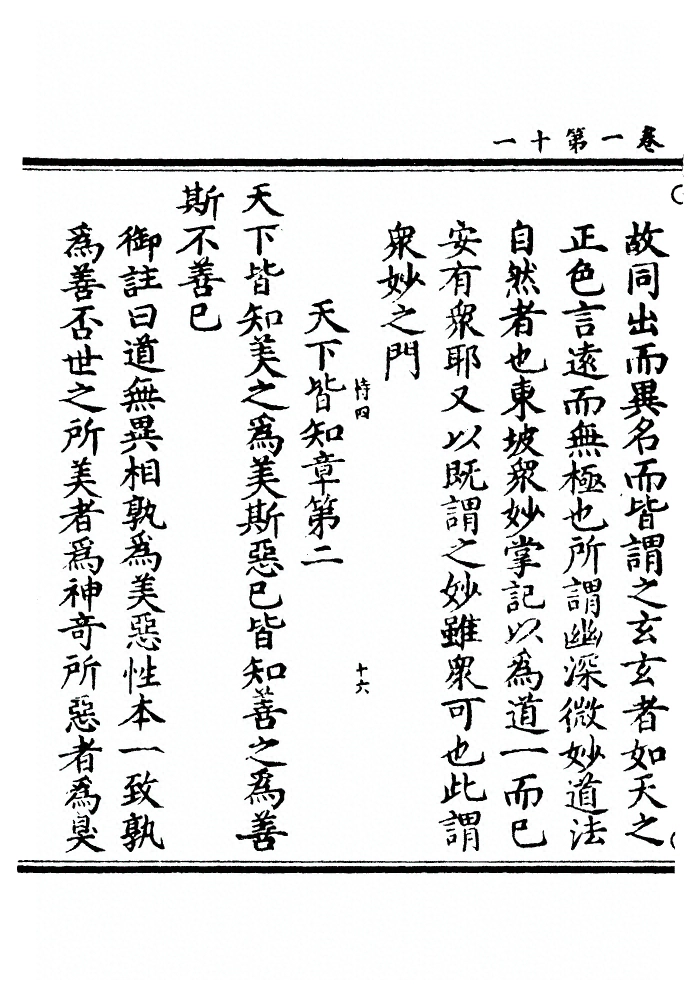 卷一第十一
故同出而異名而皆謂之玄玄者如天之
正色言遠而無極也所謂幽深微妙道法
自然者也東坡衆妙掌記以為道一而已
安有衆耶又以既謂之妙雖衆可也此謂
衆妙之門
恃四
十六
天下皆知章第二
天下皆知美之為美斯惡已皆知善之為善
斯不善已
御註曰道無異相孰為美惡性本一致孰
為善否世之所美者為神奇所惡者為臭